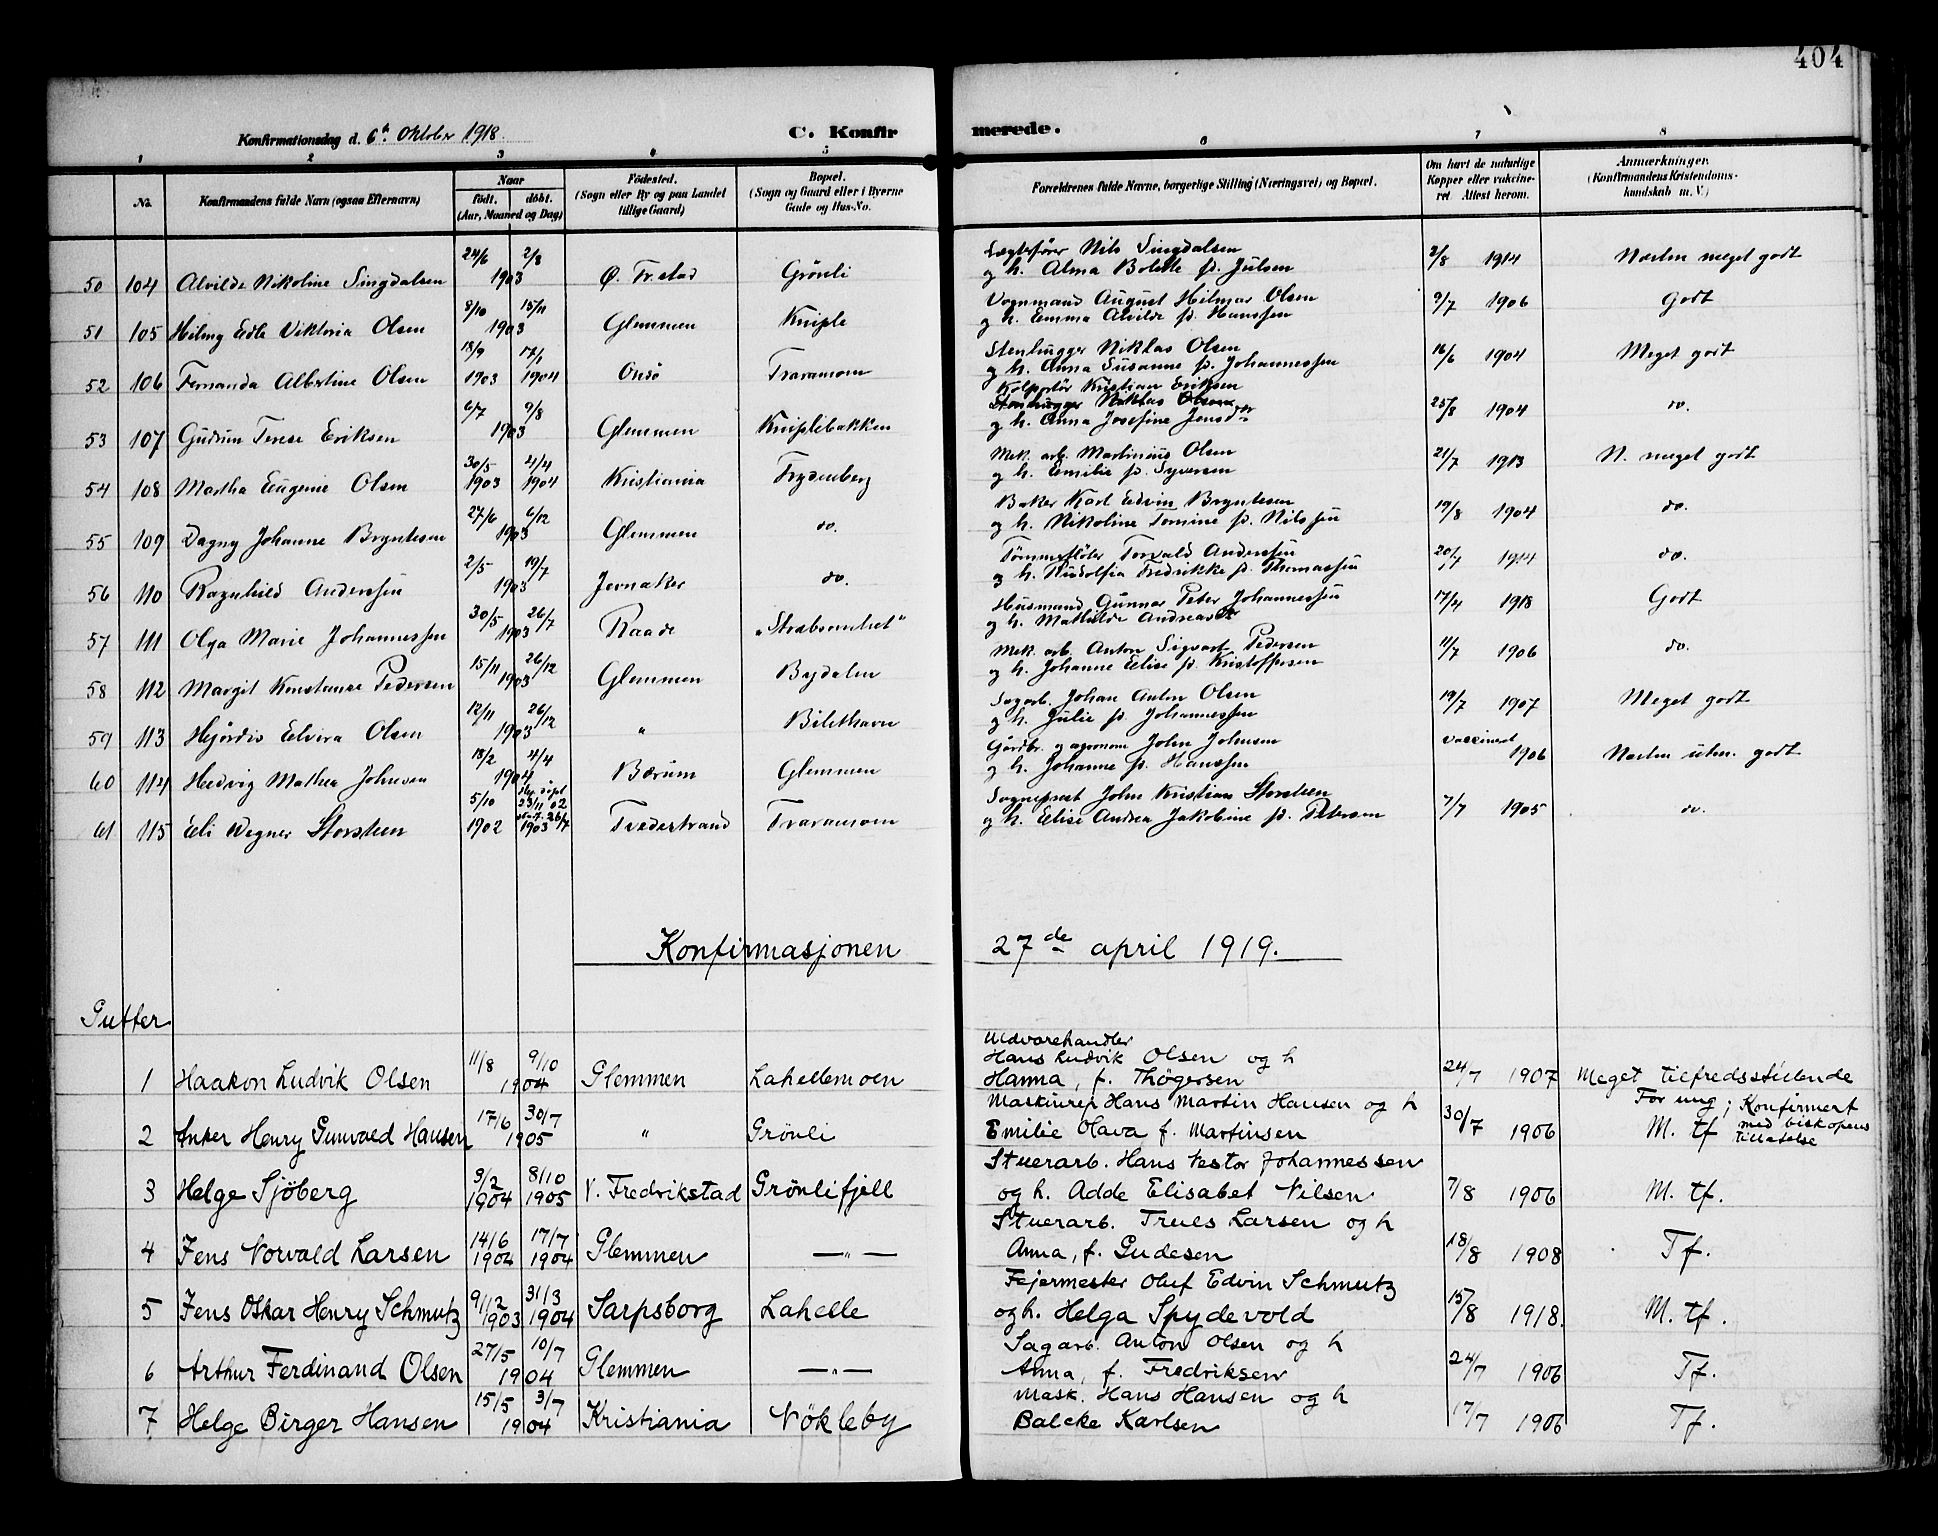 404
Konfirmationsdag d. 6te Oktober 1918.
C. Konfirmerede.
1 2 3 4 5 6 7 8
No. Konfirmandens fulde Navn (ogsaa Efternavn) Naar født. døbt. (Aar, Maaned og Dag) Fødested. (Sogn eller By og paa Landet tillige Gaard) Bopæl. (Sogn og Gaard eller i Byerne Gade og Hus-No. Forældrenes fulde Navne, borgerlige Stilling (Næringsvei) og Bopæl. Om havt de naturlige Kopper eller vakcineret Attest herom. Anmærkninger. (Konfirmandens Kristendomskundskab m. V.)
50 104 Alvilde Nikoline Singdalsen 24/6 2/8 1903 Ø. Fr.stad Grönli Nils Singdalsen
og h. Alma Bolette f. Julsen 2/8 1914 Næsten meget godt
51 105 Hilmy Edle Viktoria Olsen 8/10 15/11 1903 Glemmen Kniple Vognmand August Hilmar Olsen
og h. Emma Alvilde f. Hanssen 9/7 1906 Godt
52 106 Fernanda Albertine Olsen 13/9 1903 17/1 1904 Onsö Traramom Stenhugger Niklas Olsen
og h. Anna Susanne f. Johannessen 16/6 1904 Meget godt
53 107 Gudrun Terese Eriksen 6/7 9/8 1903 Glemmen Kniplebakken Kolportör Kristian Eriksen
Stenhugger Niklas Olsen
og h. Anna Josefine Jensdtr 25/8 1904 do.
54 108 Martha Eugenie Olsen 30/5 1903 21/4 1904 Kristiania Frydenberg Mek. arb. Martinius Olsen
og h. Emilie f. Syversen 21/7 1913 N. meget godt
55 109 Dagny Johanne Bryntesen 27/6 6/12 1903 Glemmen do. Baker Karl Edvin Bryntesen
og h. Nikoline Tomine f. Nilssen 19/8 1904 do.
56 110 Ragnhild Anderssen 2/5 19/7 1903 Jevnaker do. Tömmerflöter Torvald Anderssen
og h. Rudolfia Fredrikke f. Thomassen 20/7 1914 do.
57 111 Olga Marie Johannessen 30/5 26/7 1903 Raade Husmand Gunnar Peter Johannessen
og h. Mathilde 17/4 1918 Godt
58 112 Margit Konstanse Pedersen 15/11 26/12 1903 Glemmen Bydalen Mek. arb. Anton Sigvart Pedersen
og h. Johanne Elise f. Kristoffersen 11/7 1906 do.
59 113 Hjördis Elvira Olsen 12/11 26/12 1903 " Bilithavn Sagarb. Johan Anton Olsen
og h. Julie f. Johannessen 19/7 1907 Meget godt
60 114 Hedvig Mathea Johnsen 13/2 4/4 1904 Bærum Glemmen Gårdbr. og agronom John Johnsen
og h. Johanne f. Hanssen vaccinert 1906 Næsten utm. godt
61 115 Eli Wegner Storsteen 5/10 1902 Hj. döpt 23/11 02 26/7 1903 Tvedestrand Traramom Sogneprest John Kristian Storsteen
og h. Elise Andrea Jakobine f. Petersen 7/7 1905 do.
Konfirmasjonen 27de april 1919.
Gutter
1 Haakon Ludvik Olsen 11/8 9/10 1904 Glemmen Lahellemoen Uldvarehandler
Hans Ludvik Olsen og h
Hanna, f. Thögersen 24/7 1907 Meget tilfredsstillende
2 Anker Henry Gunvald Hansen 17/6 30/7 1905 " Grönli Maskinrep Hans Martin Hansen og h
Emilie Olava f. Martinsen 30/7 1906 M. tf For ung; Konfirmert
med biskopens
tillatelse
3 Helge Sjöberg 3/2 1904 8/10 1905 V. Fredrikstad Grönlifjell Stuerarb. Hans Nestor Johannessen
og h. Adde Elisabet Nilsen 7/8 1906 M. tf.
4 Jens Norvald Larsen 14/6 1904 17/7 1904 Glemmen —"— Stuerarb. Truls Larsen og h
Anna, f. Gudesen 18/8 1908 Tf.
5 Jens Oskar Henry Schmutz 9/12 1903 31/3 1904 Sarpsborg Lahelle Fejermester Oluf Edvin Schmutz
og h. Helga Spydevold 15/8 1918. M. tf.
6 Arthur Ferdinand Olsen 27/5 10/7 1904 Glemmen —"— Sagarb. Anton Olsen og h
Anna, f. Fredriksen 24/7 1906 Tf.
7 Helge Birger Hansen 15/5 3/7 1904 Kristiania Nökleby Mask. Hans Hansen og h
Balcke Karlsen 17/7 1906 Tf.